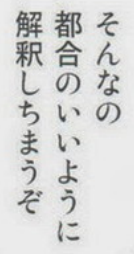 そんなの
都合のいいように
解釈しちまうぞ